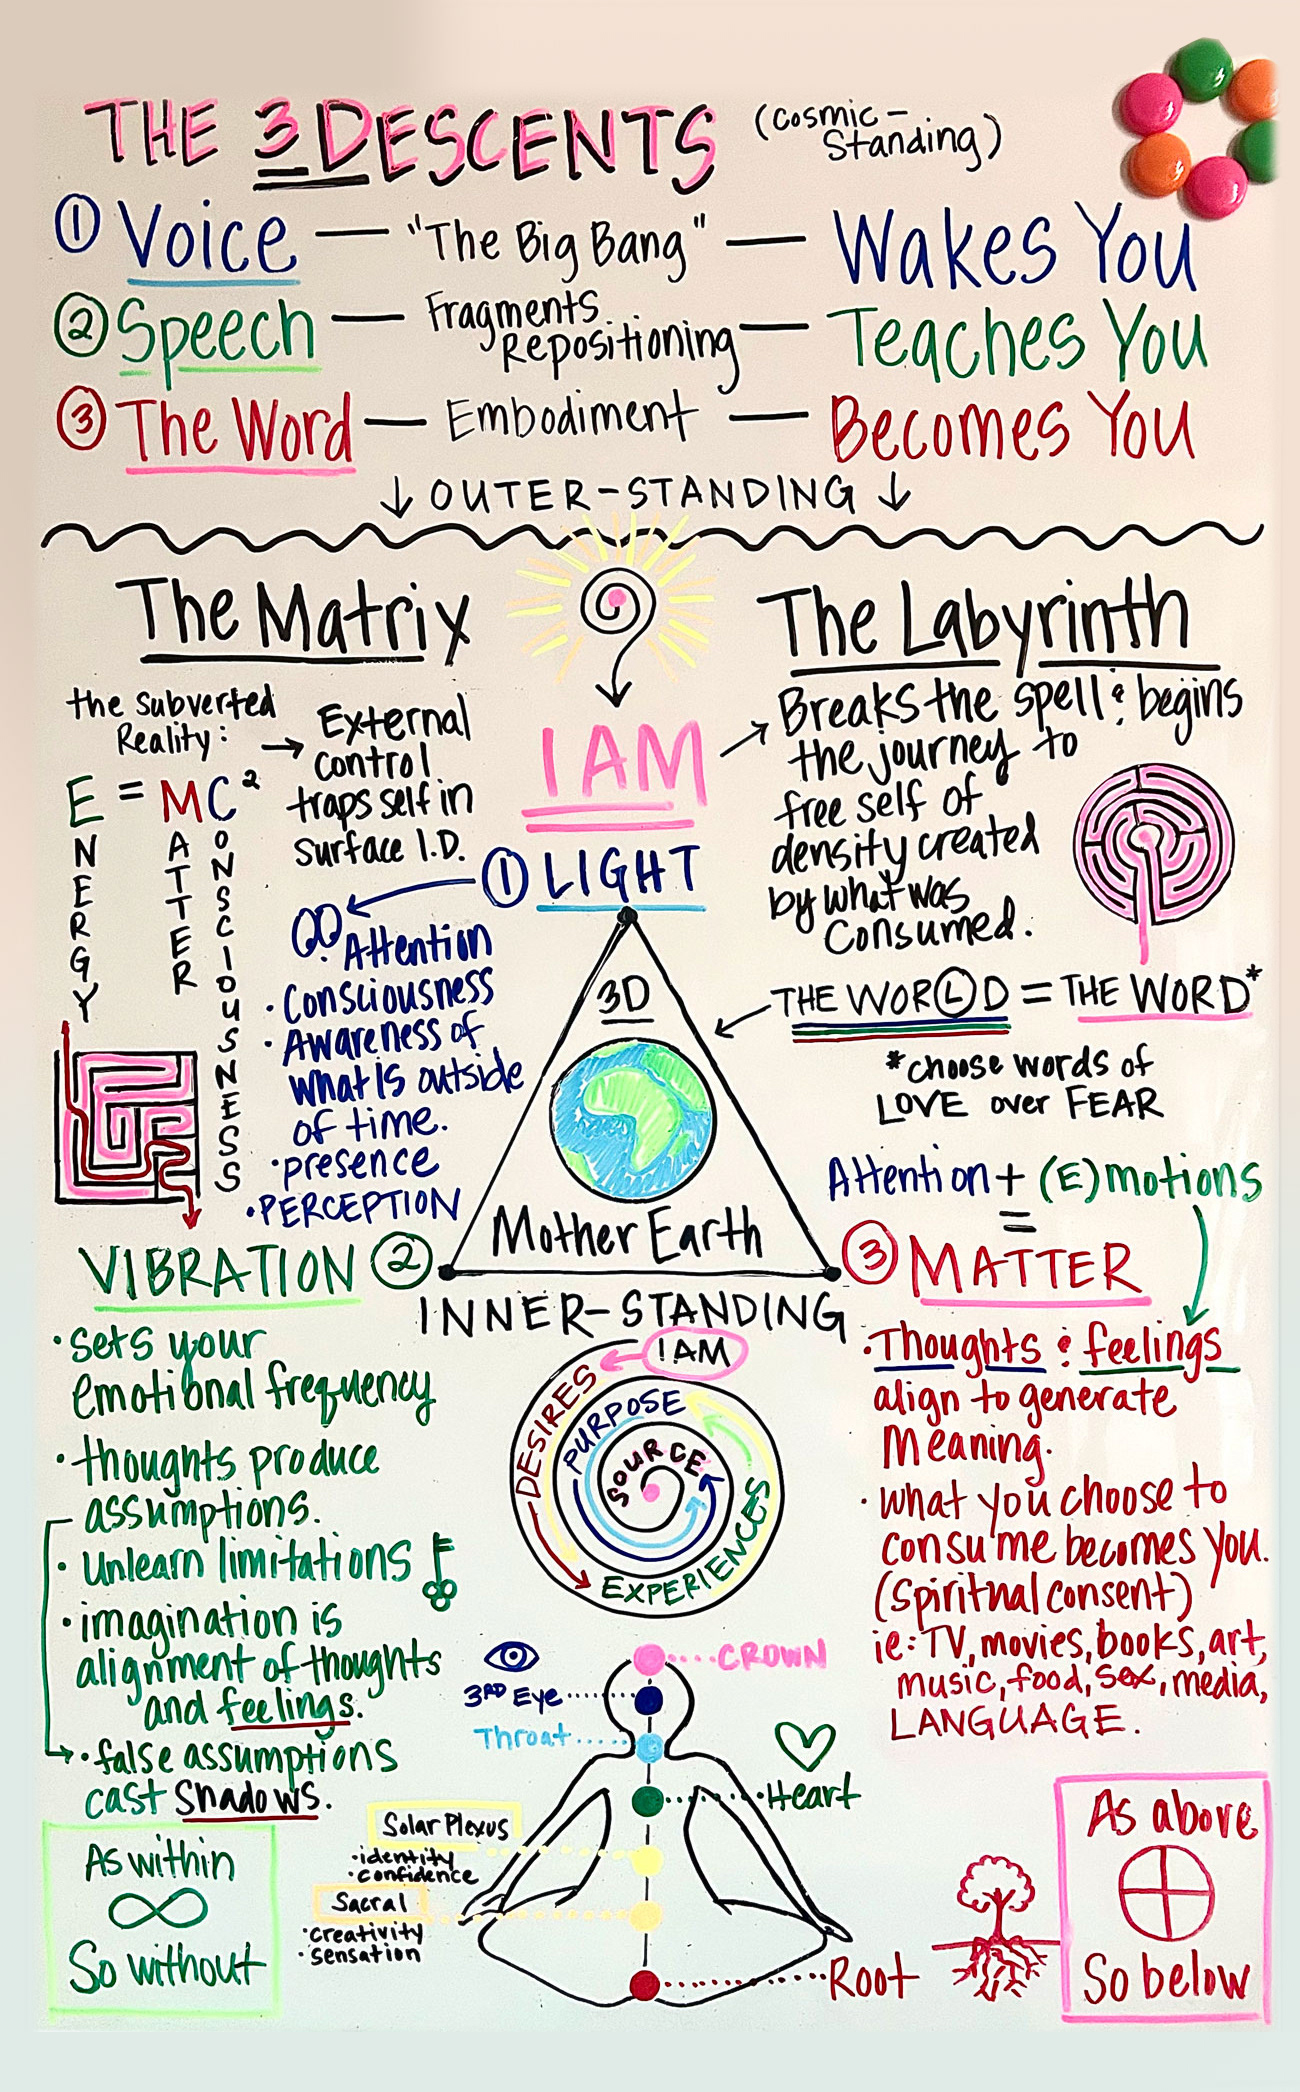 THE 3 DESCENTS (Cosmic-
Standing)
① Voice — "The Big Bang" — Wakes You
② Speech — Fragments
Repositioning — Teaches You
③ The Word — Embodiment — Becomes You
↓ OUTER-STANDING ↓
The Matrix
the Subverted
Reality: →
E = MC²
ENERGY
MATTER
CONSCIOUSNESS
External
control
traps self in
surface I.D.
I AM
The Labyrinth
Breaks the spell & begins
the journey to
free self of
density created
by what was
Consumed.
① LIGHT
Attention
• Consciousness
• Awareness of
what is outside
of time.
• presence
• PERCEPTION
3D
Mother Earth
THE WOR(L)D = THE WORD*
*choose words of
LOVE over FEAR
Attention + (E)motions
=
VIBRATION ②
• sets your
emotional frequency
• thoughts produce
assumptions.
• Unlearn limitations
• imagination is
alignment of thoughts
and feelings.
→ • false assumptions
cast shadows.
INNER-STANDING
I AM
DESIRES
PURPOSE
SOURCE
EXPERIENCES
③ MATTER
• Thoughts & feelings
align to generate
Meaning.
• what you choose to
consume becomes you.
(Spiritual consent)
ie: TV, movies, books, art,
music, food, sex, media,
LANGUAGE.
CROWN
3RD Eye
Throat
Heart
Solar Plexus
• identity
• confidence
Sacral
• creativity
• sensation
Root
As within
∞
So without
As above
So below